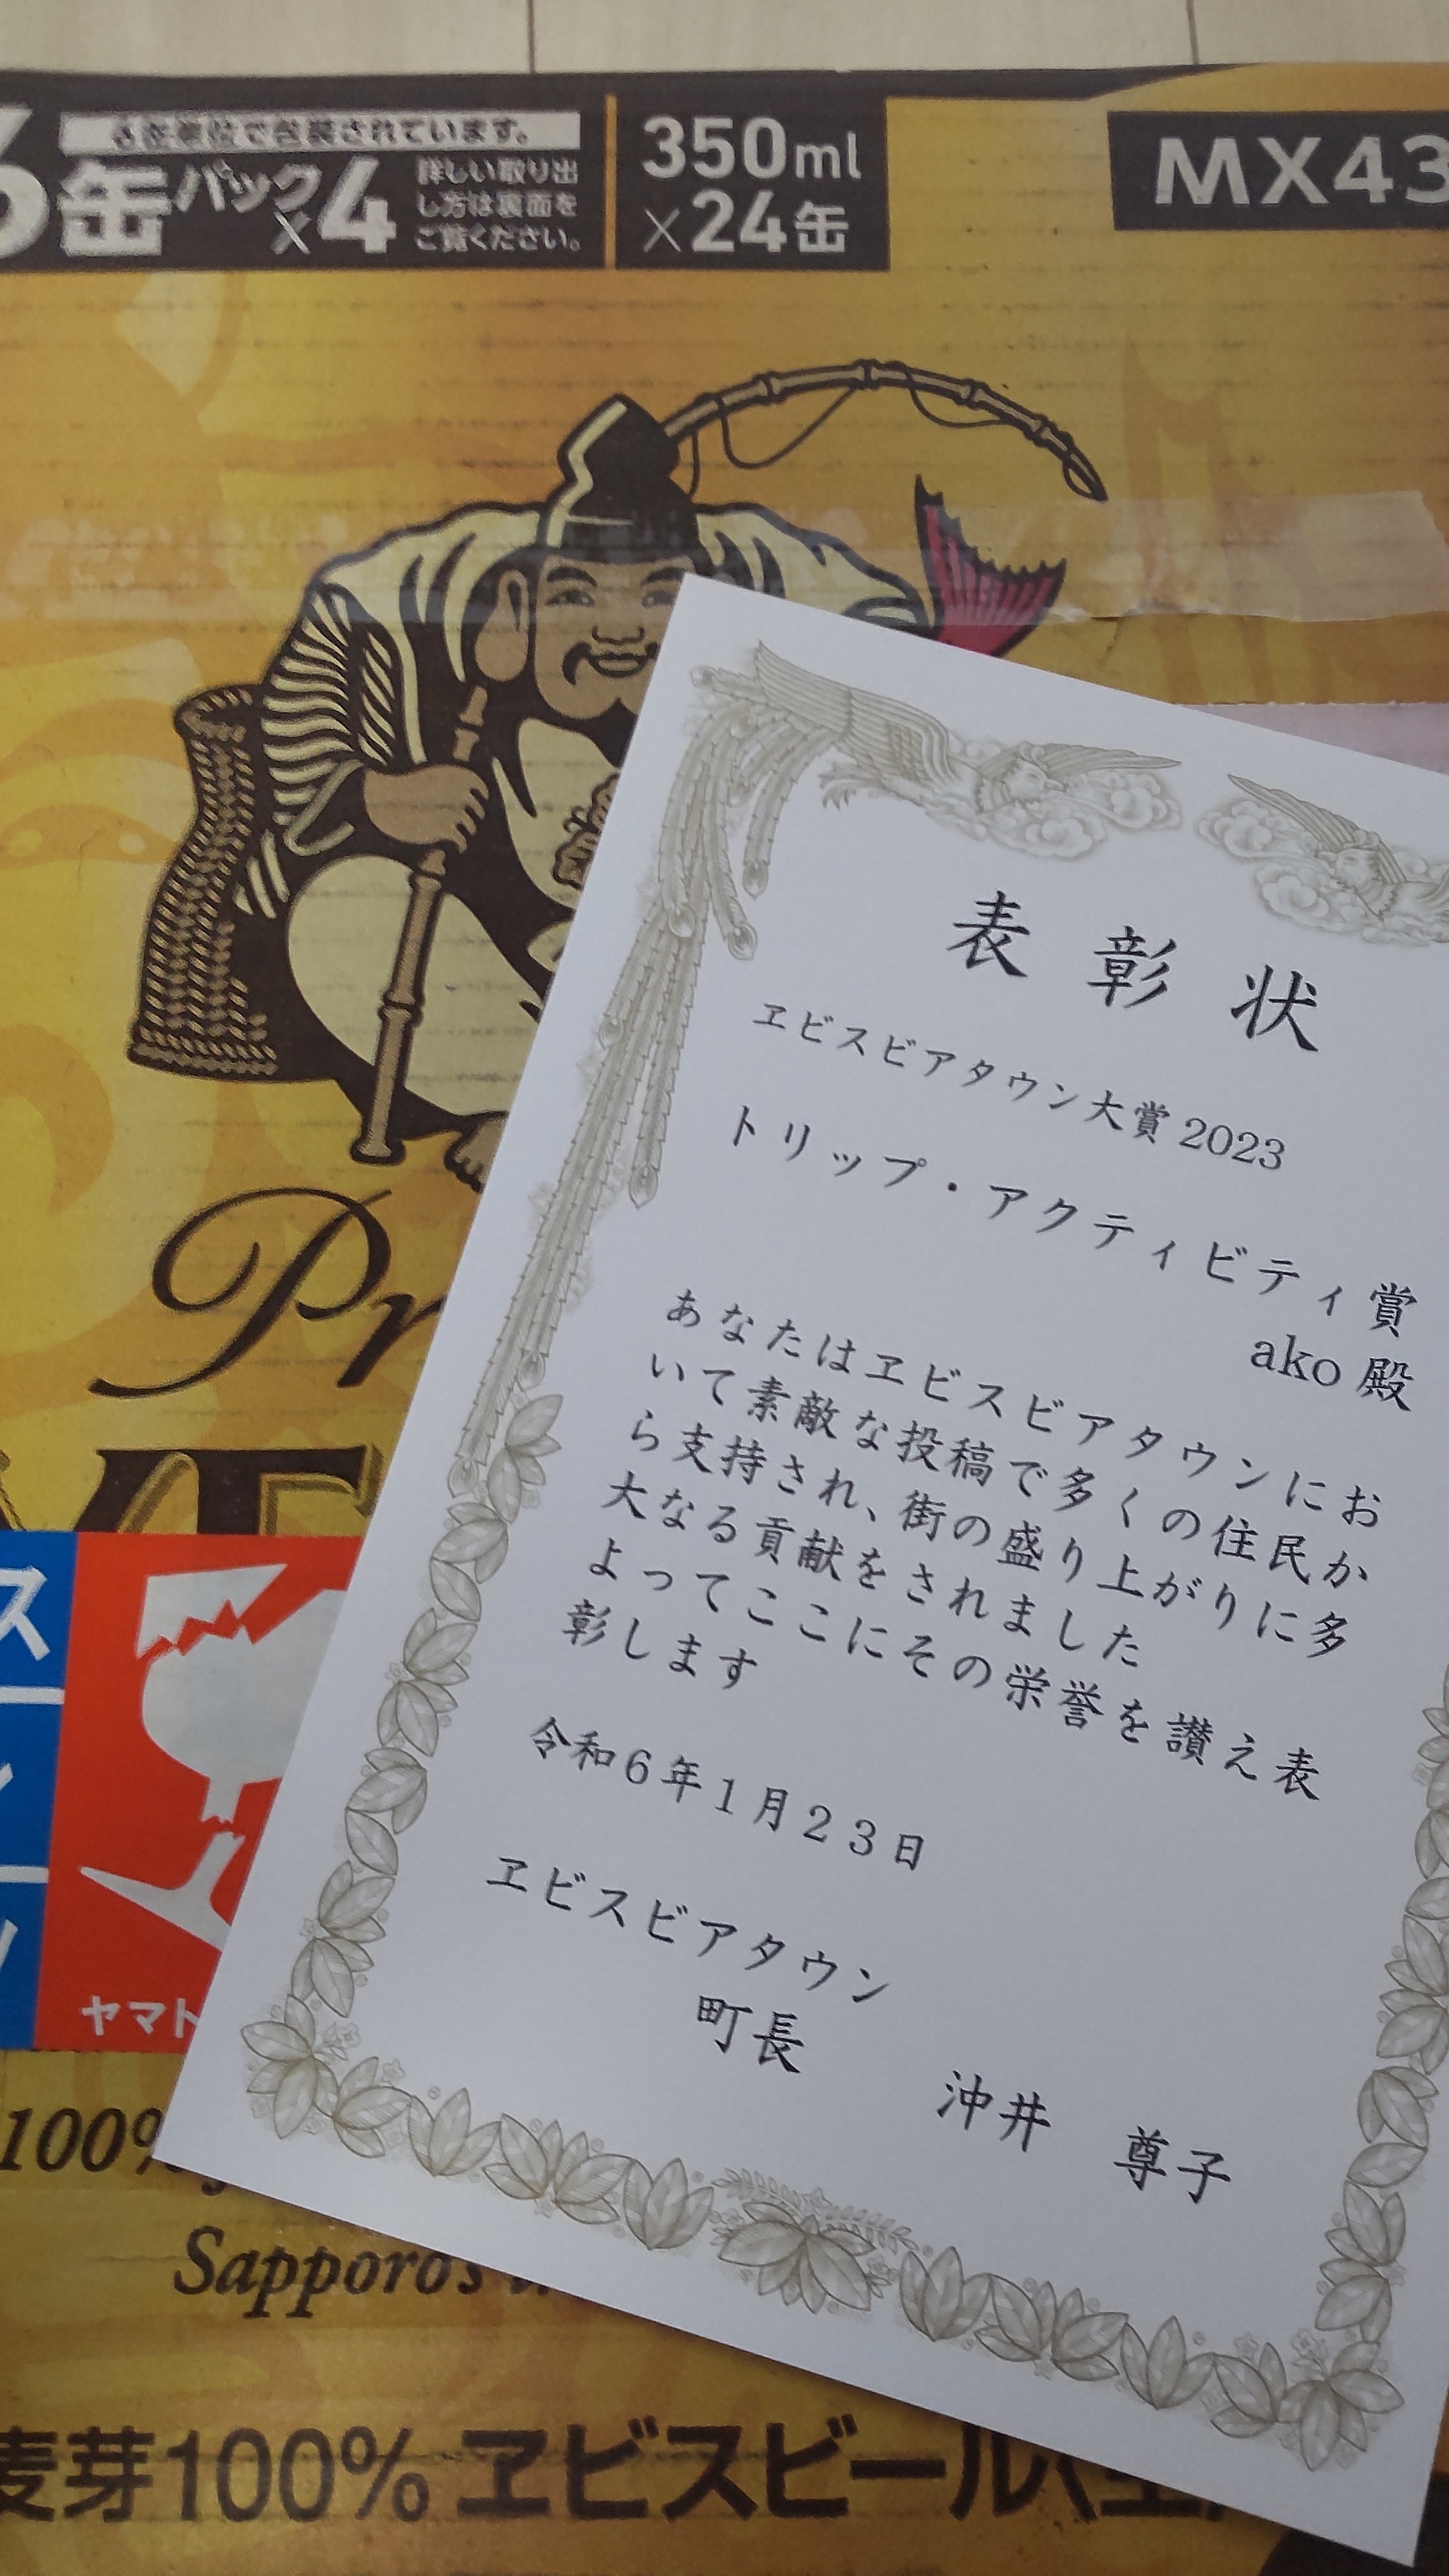 6缶パック×4
6缶単位で包装されています。
詳しい取り出
し方は裏面を
ご覧ください。
350ml
×24缶
MX43
表彰状
ヱビスビアタウン大賞2023
トリップ・アクティビティ賞
ako 殿
あなたはヱビスビアタウンにお
いて素敵な投稿で多くの住民か
ら支持され、街の盛り上がりに多
大なる貢献をされました
よってここにその栄誉を讃え表
彰します
令和6年1月23日
ヱビスビアタウン
町長 沖井 尊子
Pr
ス
ヤマト
100%
Sapporo's
麦芽100% ヱビスビール